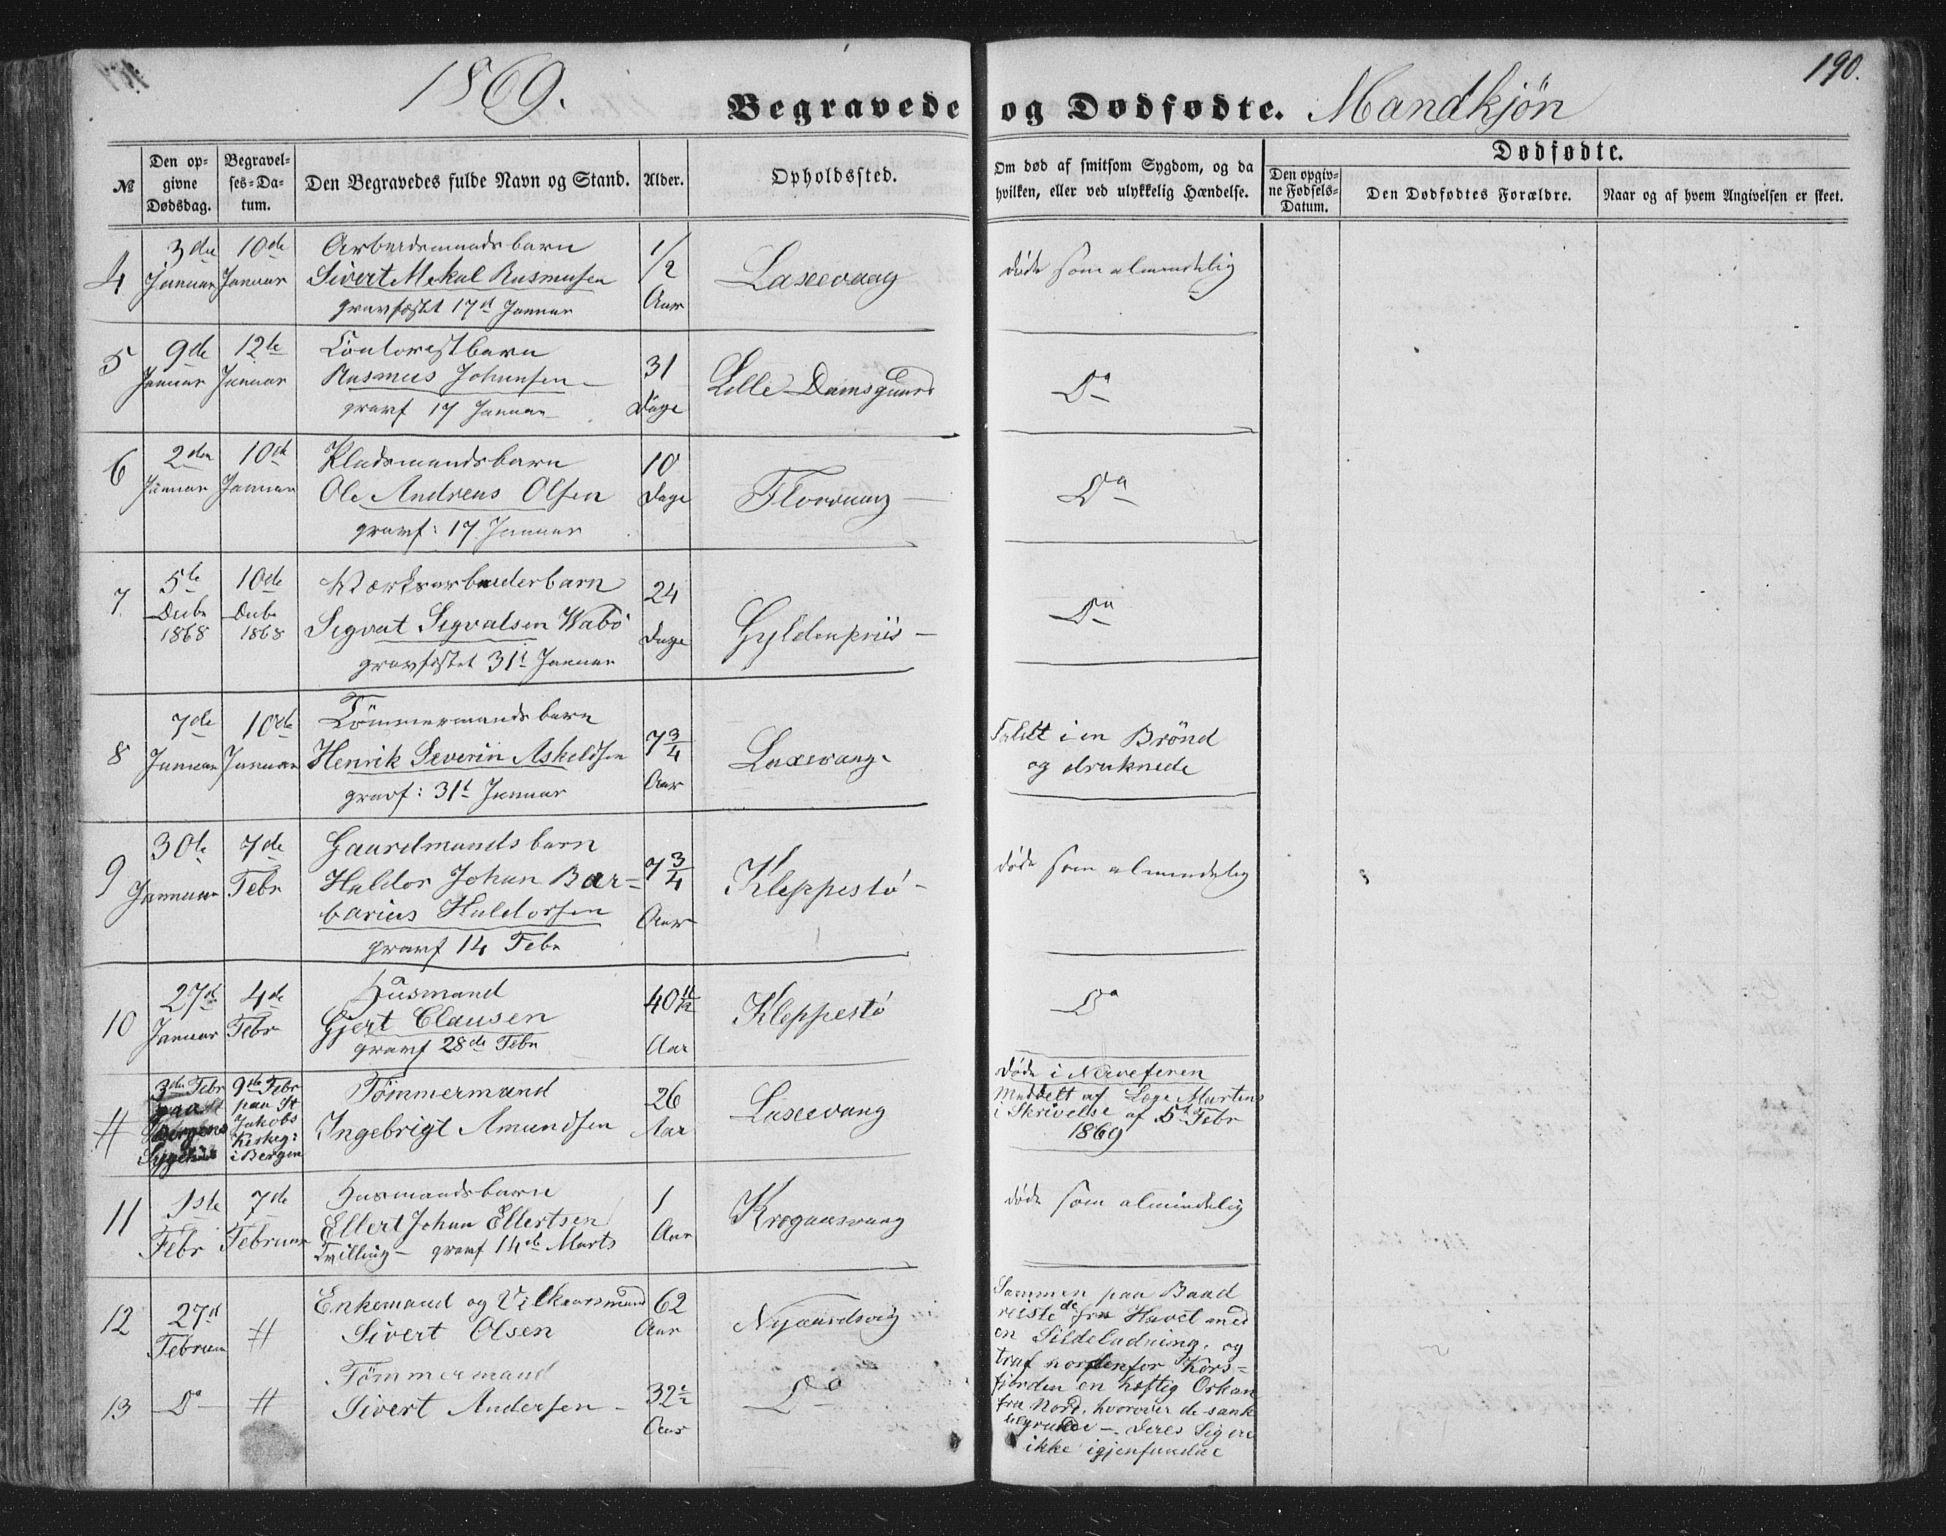 1869.
Begravede og Dødfødte. Mandkjøn
190.
№
Den opgivne Dødsdag.
Begravelses-Datum.
Den Begravedes fulde Navn og Stand.
Alder.
Opholdssted.
Om død af smitsom Sygdom, og da hvilken, eller ved ulykkelig Hændelse.
Dødfødte.
Den opgivne Fødsels-Datum.
Den Dødfødtes Forældre.
Naar og af hvem Angivelsen er skeet.
4
3die Januar
10de Januar
Arbeidsmandsbarn
Sivert Mekal Rasmusen
gravfæstet 17d Januar
1/2 Aar
Laxevaag
døde som almindelig
5
9de Januar
12te Januar
Contoristbarn
Rasmus Johansen
gravf 17 Januar
31 Dage
Lille Damsgaard
Do
6
2den Januar
10de Januar
Pladsmandsbarn
Ole Andreas Olsen
gravf: 17 Januar
10 Dage
Florvaag
Do
7
5te Decbr 1868
10de Decbr 1868
Værksarbeiderbarn
Sigvat Sigvalsen Wabö
gravfæstet 31t Januar
24 Dage
Gyldenpriis
Do
8
7de Januar
10de Januar
Tömmermandsbarn
Henrik Severin Askeldsen
gravf: 31t Januar
7 3/4 Aar
Laxevaag
Faldt i en Brönd
og druknede
9
30te Januar
7de Febr
Gaardmandsbarn
Haldor Johan Bar-
barius Haldorsen
gravf 14 Febr
7 3/4 Aar
Kleppestö
døde som almindelig
10
27de Januar
4de Febr
Husmand
Gjert Clausen
gravf 28de Febr
40 11/12 Aar
Kleppestö
Do
#
3die Febr paa Bergens Sygehus
9de Febr paa St Jakobs Kirkeg: i Bergen
Tömmermand
Ingebrigt Amundsen
26 Aar
Laxevaag
Døde i Nerveferen
Meddelt af Læge Martens
i Skrivelse af 5t Febr
1869
11
1ste Febr
7de Februar
Husmandsbarn
Ellert Johan Ellertsen
Tvilling - gravf 14de Marts
1 Aar
Krogaasvaag
døde som almindelig
12
27d Februar
#
Enkemand og Vilkaarsmand
Sivert Olsen
62 Aar
Sammen paa Baad
reiste de fra Havet med
en Sildeladning, og
traf nordenfor Kors-
fjorden en heftig Orkan
fra Nord, hvorover de sank
tilgrunde - Deres Lig ere
ikke igjenfundne
13
Do
#
Tömmermand
Sivert Andersen
32 1/2 Aar
Do